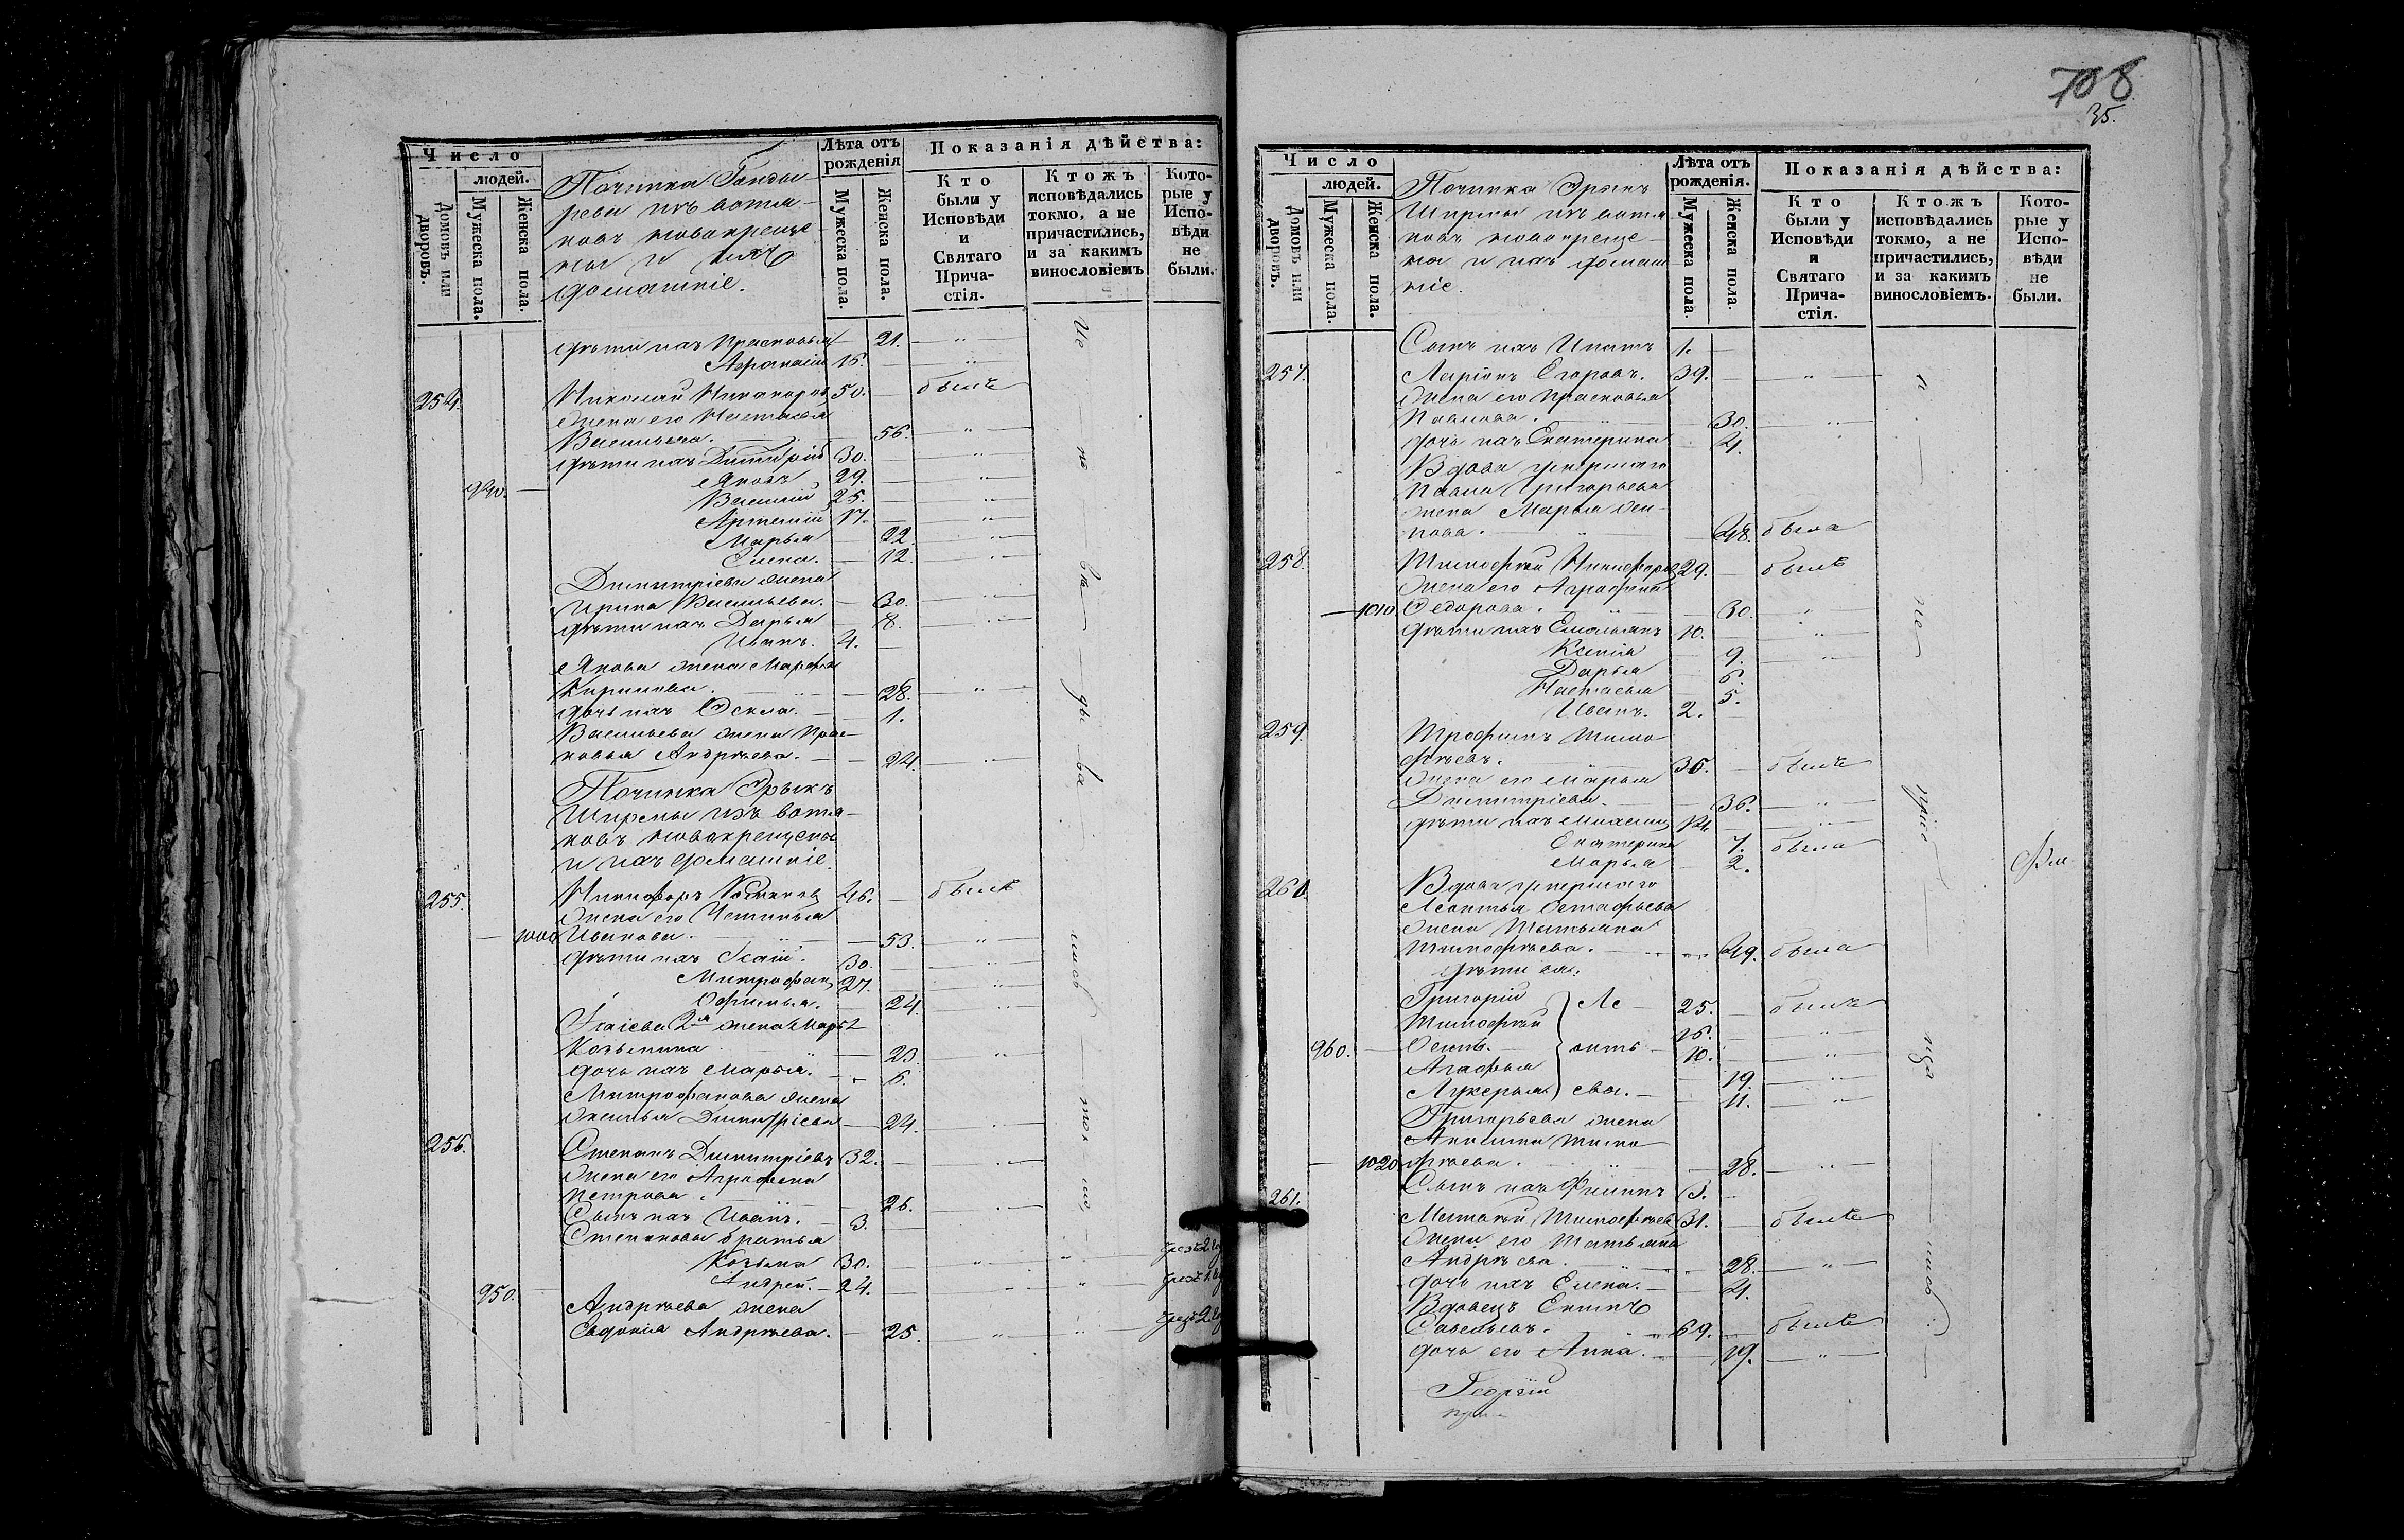 708
35.
Число
людей.
Домовъ или дворовъ.
Мужеска пола.
Женска пола.
Починка Гонды-
рева изъ вотя-
ковъ новокреще-
ны и ихъ
домашніе.
Лѣта отъ рожденія
Мужеска пола.
Женска пола.
Показанія дѣйства:
Кто были у Исповѣди и Святаго Прича-стія.
Ктожъ исповѣдались токмо, а не причастились, и за какимъ винословіемъ
Кото-рые у Испо-вѣди не были.
дѣти ихъ Прасковья — 21. — „ —
Афанасій 15. — „ —
254. Николай Никифоровъ 50. былъ
жена его Настасья
Васильева. — 56. — „ —
дѣти ихъ Димитрій 30. — „ —
Яковъ 29. — „ —
940. — Василій 25. — „ —
Артемій 17. — „ —
Марья — 22. — „ —
Елена. — 12. — „ —
Димитріева жена
Ирина Васильева. — 30. — „ —
дѣти ихъ Дарья — 8. — „ —
Иванъ. 4. —
Якова жена Марфа
Кирилова. — 28. — „ —
дочь ихъ Фекла. — 1.
Васильева жена Прас-
ковья Андрѣева. — 24. — „ —
Починка Эрыкъ
Ширмы изъ вотя-
ковъ новокрещены
и ихъ домашніе
255. Никифоръ 46. — былъ
жена его Устинья
— 1000 Иванова. — 53. — „ —
дѣти ихъ Исаій. 30. — „ —
Митрофанъ 27. — „ —
Офимья. — 24. — „ —
Исаіева 2я жена Марья
Козьмина — 23 — „ —
дочь ихъ Марья. — 6.
Митрофанова жена
Димитріева — 24. — „ —
256. Степанъ Димитріевъ 32. — „ —
жена его Аграфена
Петрова. — 26. — „ —
Сынъ ихъ Иванъ. — 3. —
Степановы братья
Козьма 30. — „ —
950. — Андрей. — 24. — „ —
Андрѣева жена
Евдокія Андрѣева. — 25. „ —
Не по вѣ дь ва лись
Число
людей.
Домовъ или дворовъ.
Мужеска пола.
Женска пола.
Починка Эрыкъ
Ширмы изъ вотя-
ковъ новокреще-
ны и ихъ домаш-
ніе.
Лѣта отъ рожденія.
Мужеска пола.
Женска пола.
Показанія дѣйства:
Кто были у Исповѣди и Святаго Прича-стія.
Ктожъ исповѣдались токмо, а не причастились, и за какимъ винословіемъ.
Кото-рые у Испо-вѣди не были.
Сынъ ихъ Ипатъ 1. —
257. Ларіонъ Егоровъ. 39. — „ —
жена его Прасковья
Павлова. — 30. — „ —
дочь ихъ Екатерина — 4.
Вдова умершаго
Павла Григорьева
жена Марья Оси-
пова. — 48. была
258. Тимофей Никифоровъ 29. — былъ
жена его Аграфена
— 1010 Федорова. — 30. — „ —
дѣти ихъ Емельянъ 10. — „ —
Ксенія — 9. — „ —
Дарья — 6.
Настасья — 5.
Иванъ. 2. —
259. Трофимъ Тимо-
фѣевъ. 35. — былъ
жена его Марья
Димитріева. — 36. — „ —
дѣти ихъ Михаилъ 14. — „ —
Екатерина — 7. была
Марья — 2.
260. Вдова умершаго
Леонтья Остафьева
жена Татьяна
Тимофѣева. — 49. была
дѣти ея.
Григорій } Ле — 25. — былъ
Тимофей 16. — „ —
960. — Осипъ. онть — 10. — „ —
Агафья — 19. — „ —
Лукерья евы. — 11. — „ —
Григорьева жена
Акилина Тимо-
— 1020 фѣева. — 28. — „ —
Сынъ ихъ Филипъ 3. —
261. Матвѣй Тимофѣевъ 31. — былъ
жена его Татьяна
Андрѣева. — 28. — „ —
дочь ихъ Елена. — 4.
Вдовецъ Екимъ
Савельевъ. — 69. — былъ
дочь его Анна. — 19. — „ —
Георгій